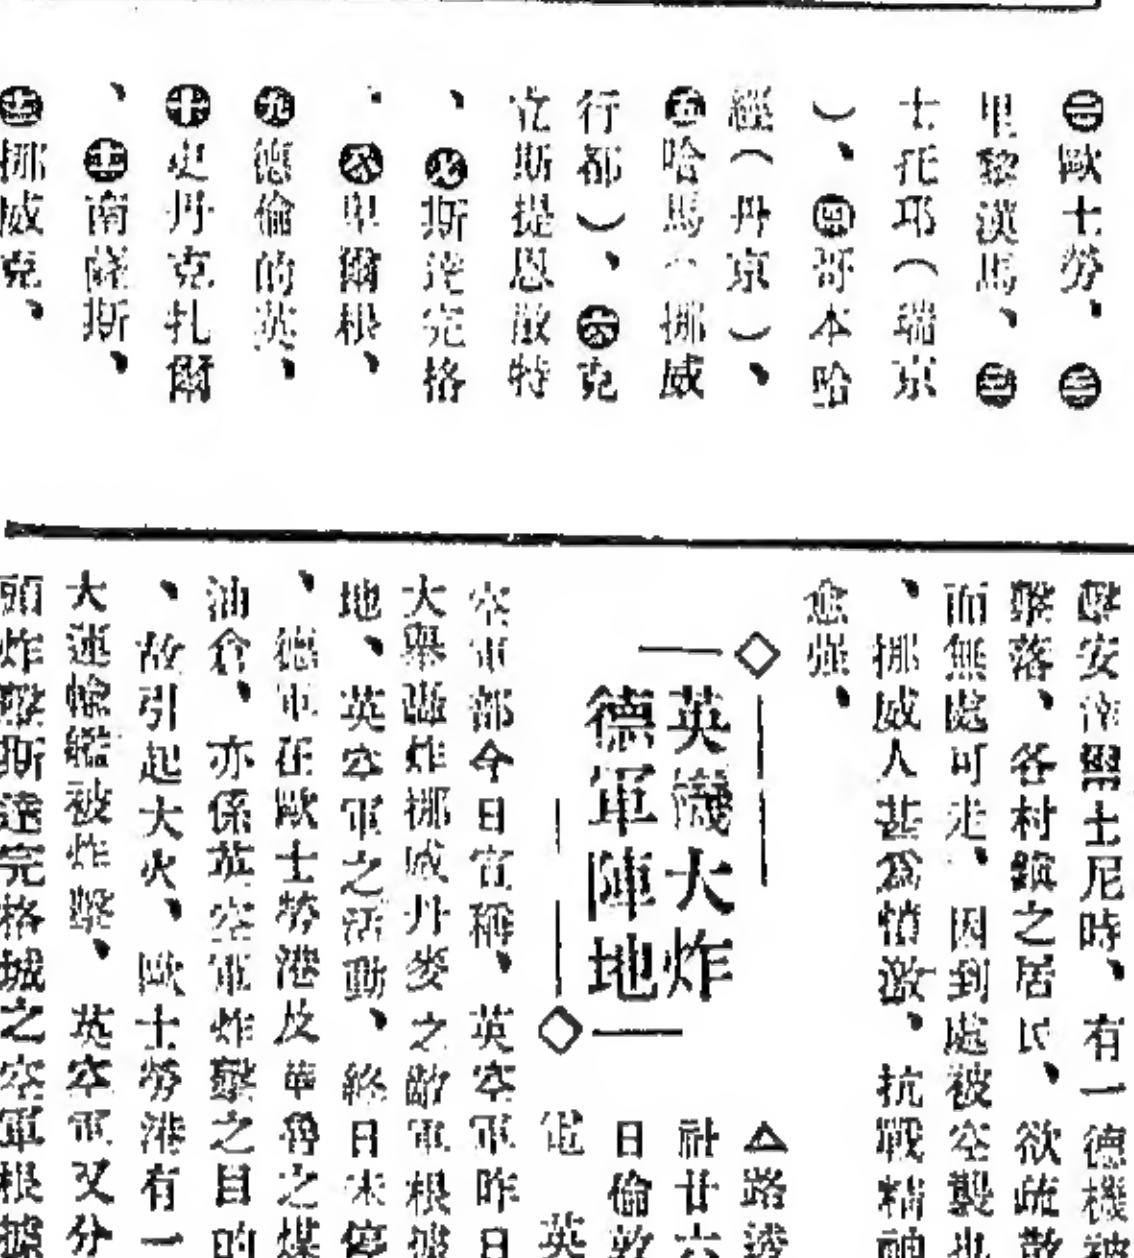 ㊀歐士勞、㊁
里黎漢馬、㊂
士托耶（瑞京
）、㊃哥本哈
經（丹京）、
㊄哈馬（挪威
行都）、㊅克
立斯提恩散特
、㊆斯達完格
、㊇卑爾根、
㊈德倫的英、
㊉史丹克扎爾
、⓫南薩斯、
⓬挪威克、
擊安 黑士尼時、有一德機被
擊落、各村鎮之居民、欲疏散
而無處可走、因到處被空襲也
、挪威人甚為憤激、抗戰精神
愈强、
英機大炸
德軍陣地
△路透
社廿六
日倫敦
電 英
空軍部今日宣稱、英空軍昨日
大舉轟炸挪威丹麥之敵軍根據
地、英空軍之活動、終日未停
、德軍在歐士勞港及 之煤
油倉、亦係英空軍炸擊之目的
、故引起大火、歐士勞港有一
大運輸艦被炸擊、英空軍又分
頭炸擊斯達完格城之空軍根據